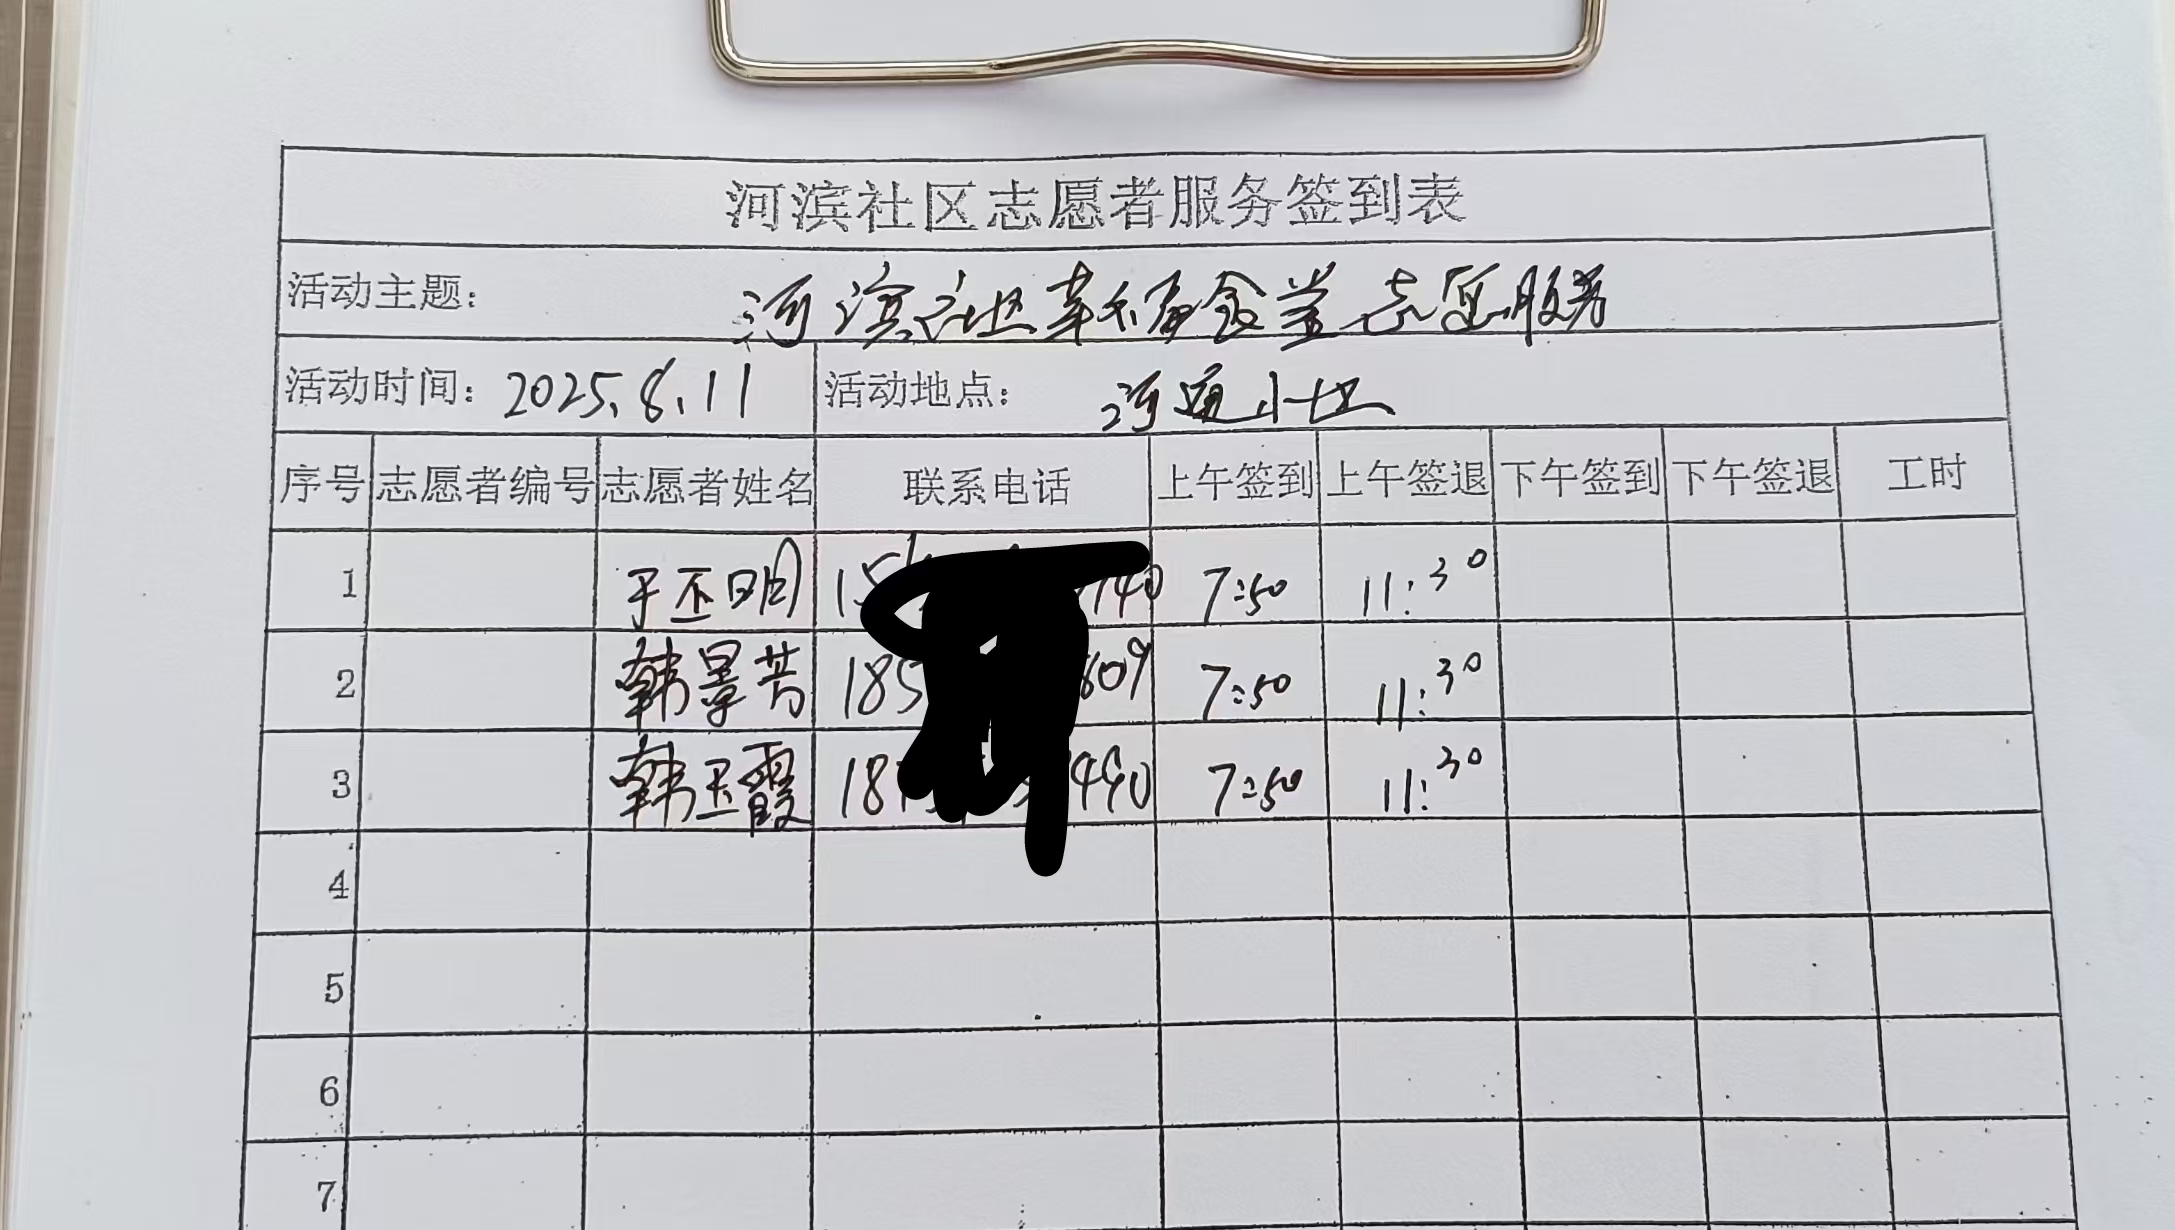 河滨社区志愿者服务签到表
活动主题: 河滨社区幸福食堂志愿服务
活动时间: 2025.8.11 活动地点: 河通小区
序号 志愿者编号 志愿者姓名 联系电话 上午签到 上午签退 下午签到 下午签退 工时
1 于丕明 15 740 7:50 11:30
2 韩景芳 185 609 7:50 11:30
3 韩玉霞 187 490 7:50 11:30
4
5
6
7